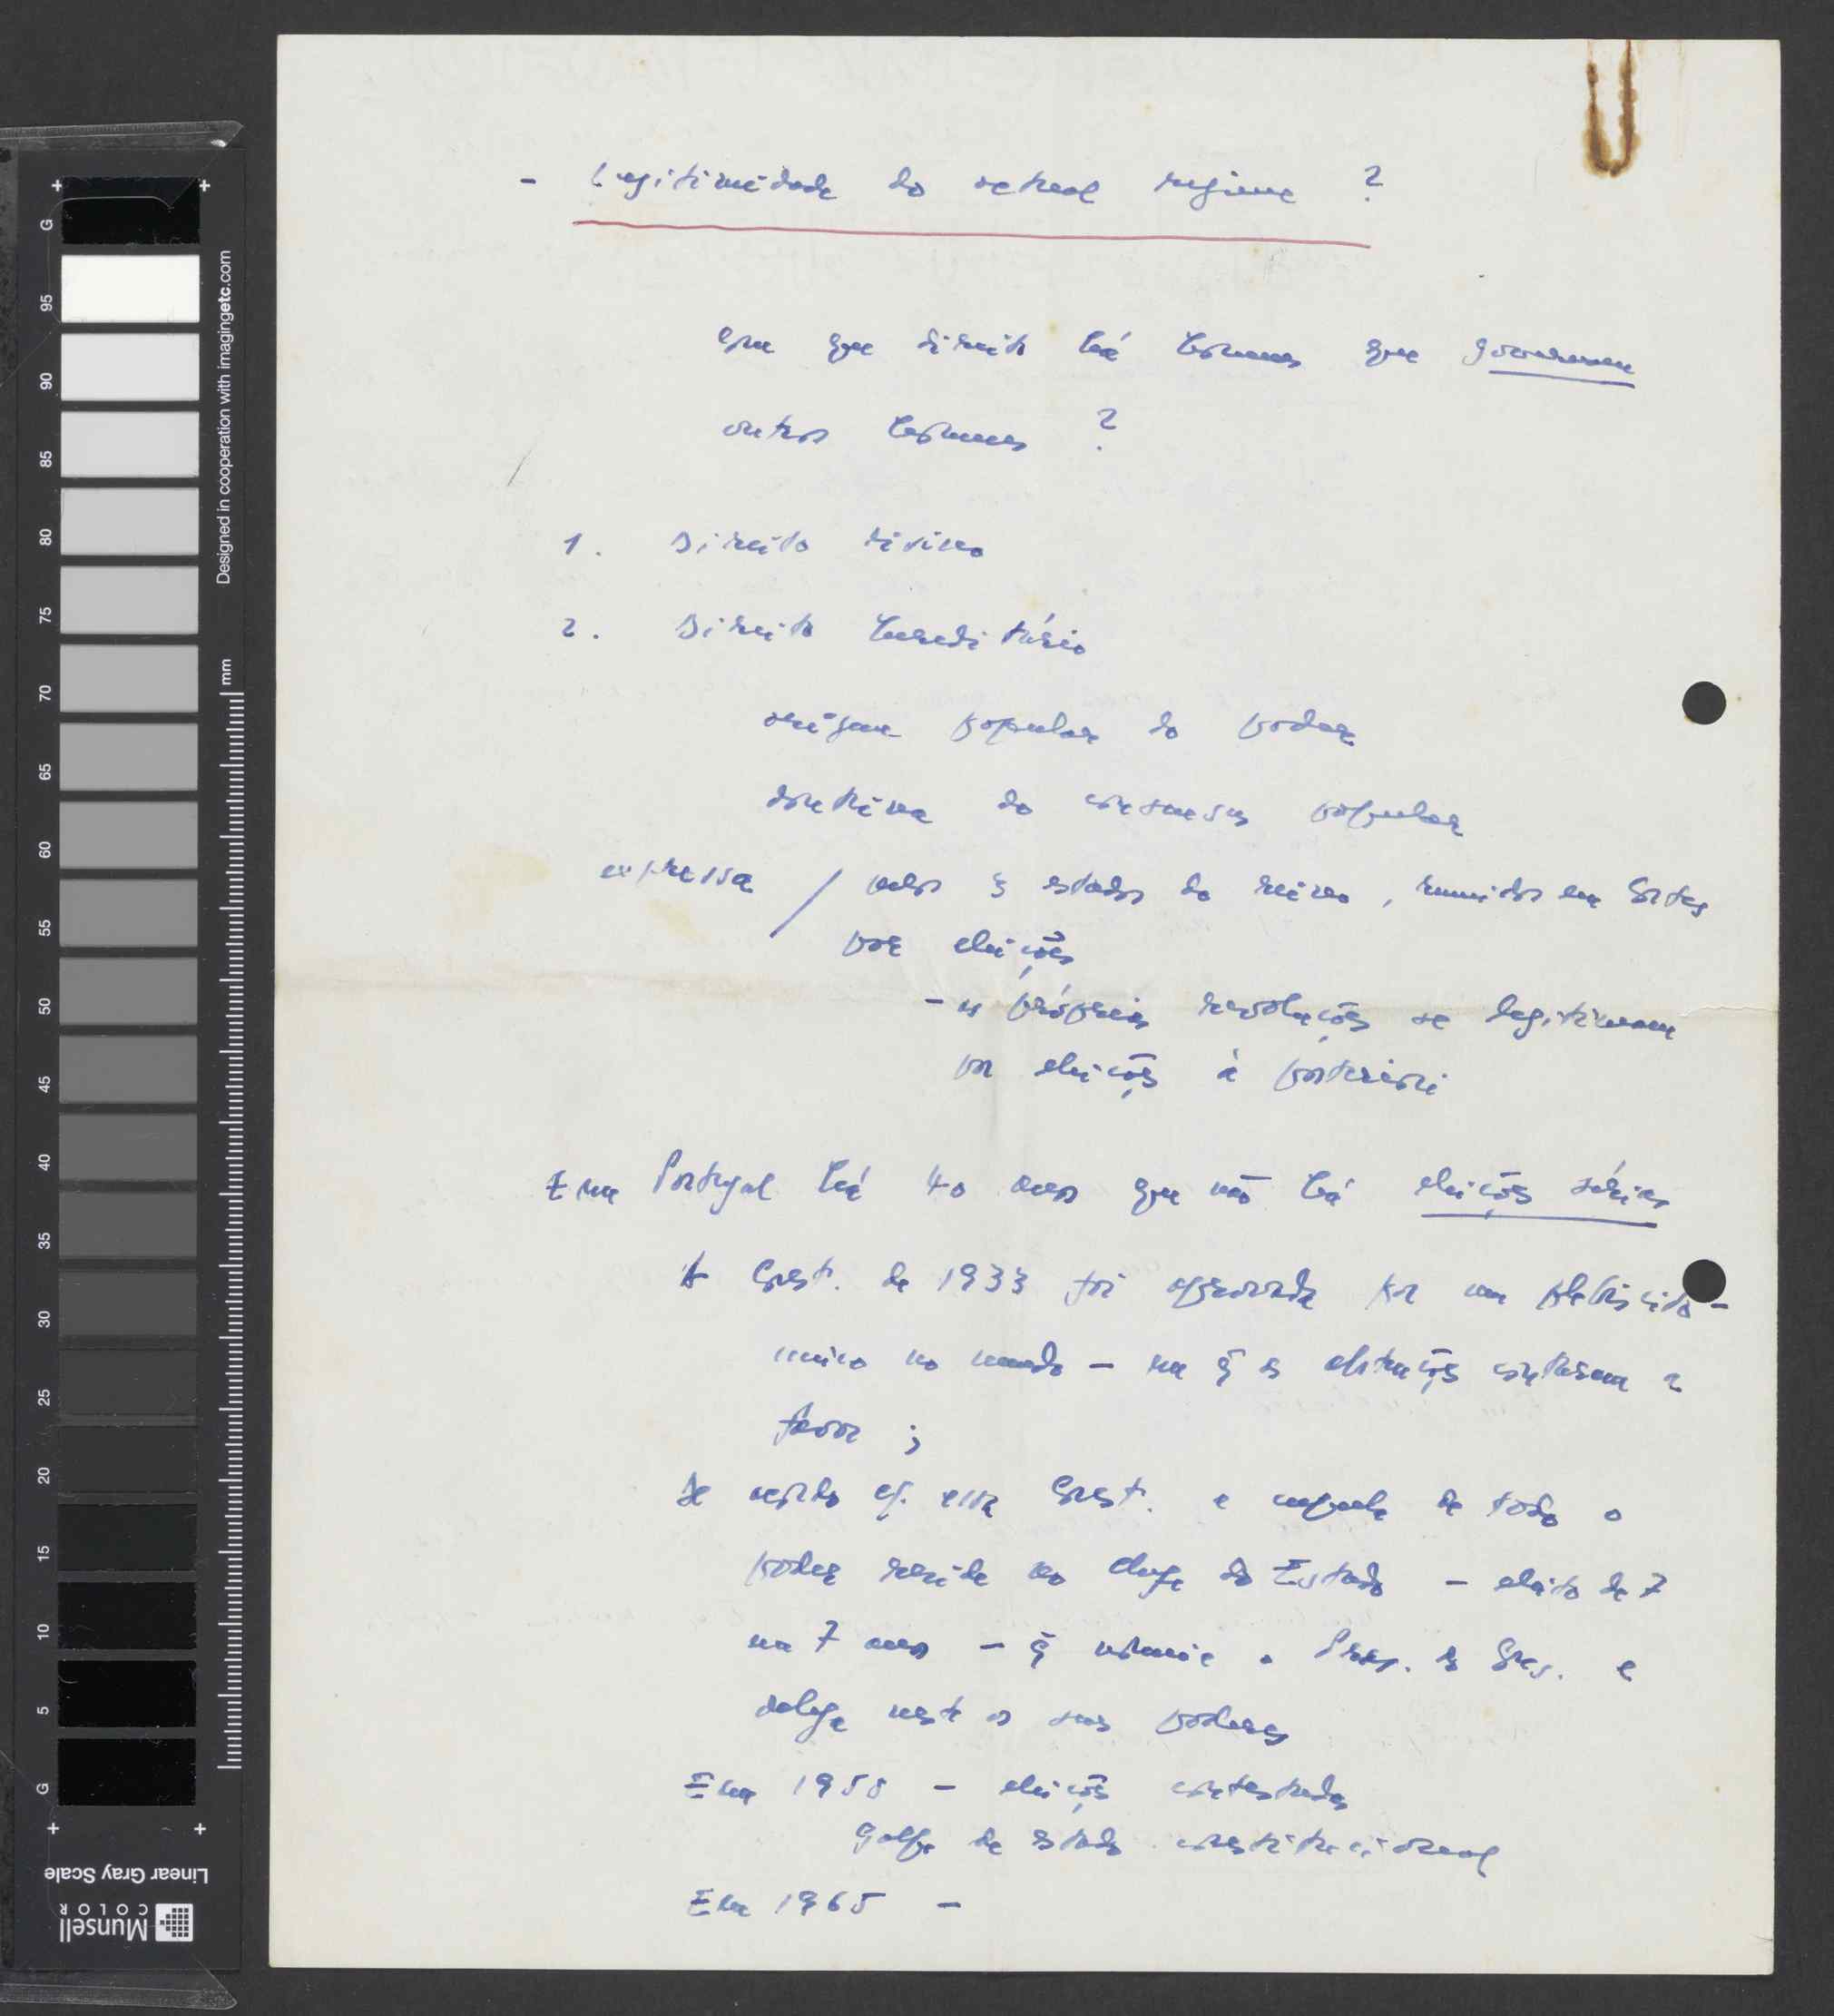 - Legitimidade do actual regime ?
Com que direito há homens que governam
outros homens ?
1. Direito divino
2. Direito hereditário
origem popular do poder
doutrina do consensus popular
expressa / pelos 3 estados do reino, reunidos em Cortes
por eleições
- as próprias revoluções se legitimam
por eleições à posteriori
Em Portugal há 40 anos que não há eleições sérias
A Const. de 1933 foi aprovada por um plebiscito -
unico no mundo - em q̃ as abstenções contaram a
favor ;
De acordo c/. essa Const. a cupula de todo o
poder reside no chefe do Estado - eleito de 7
em 7 anos - q̃ nomeia o Pres. do Cons. e
delega neste os seus poderes
Em 1958 - eleições contestadas
golpe de estado constitucional
Em 1965 -
G 95 90 85 80 75 70 65 60 55 50 45 40 35 30 25 20 15 10 5 G
Designed in cooperation with imagingetc.com
mm
Linear Gray Scale
Munsell
COLOR